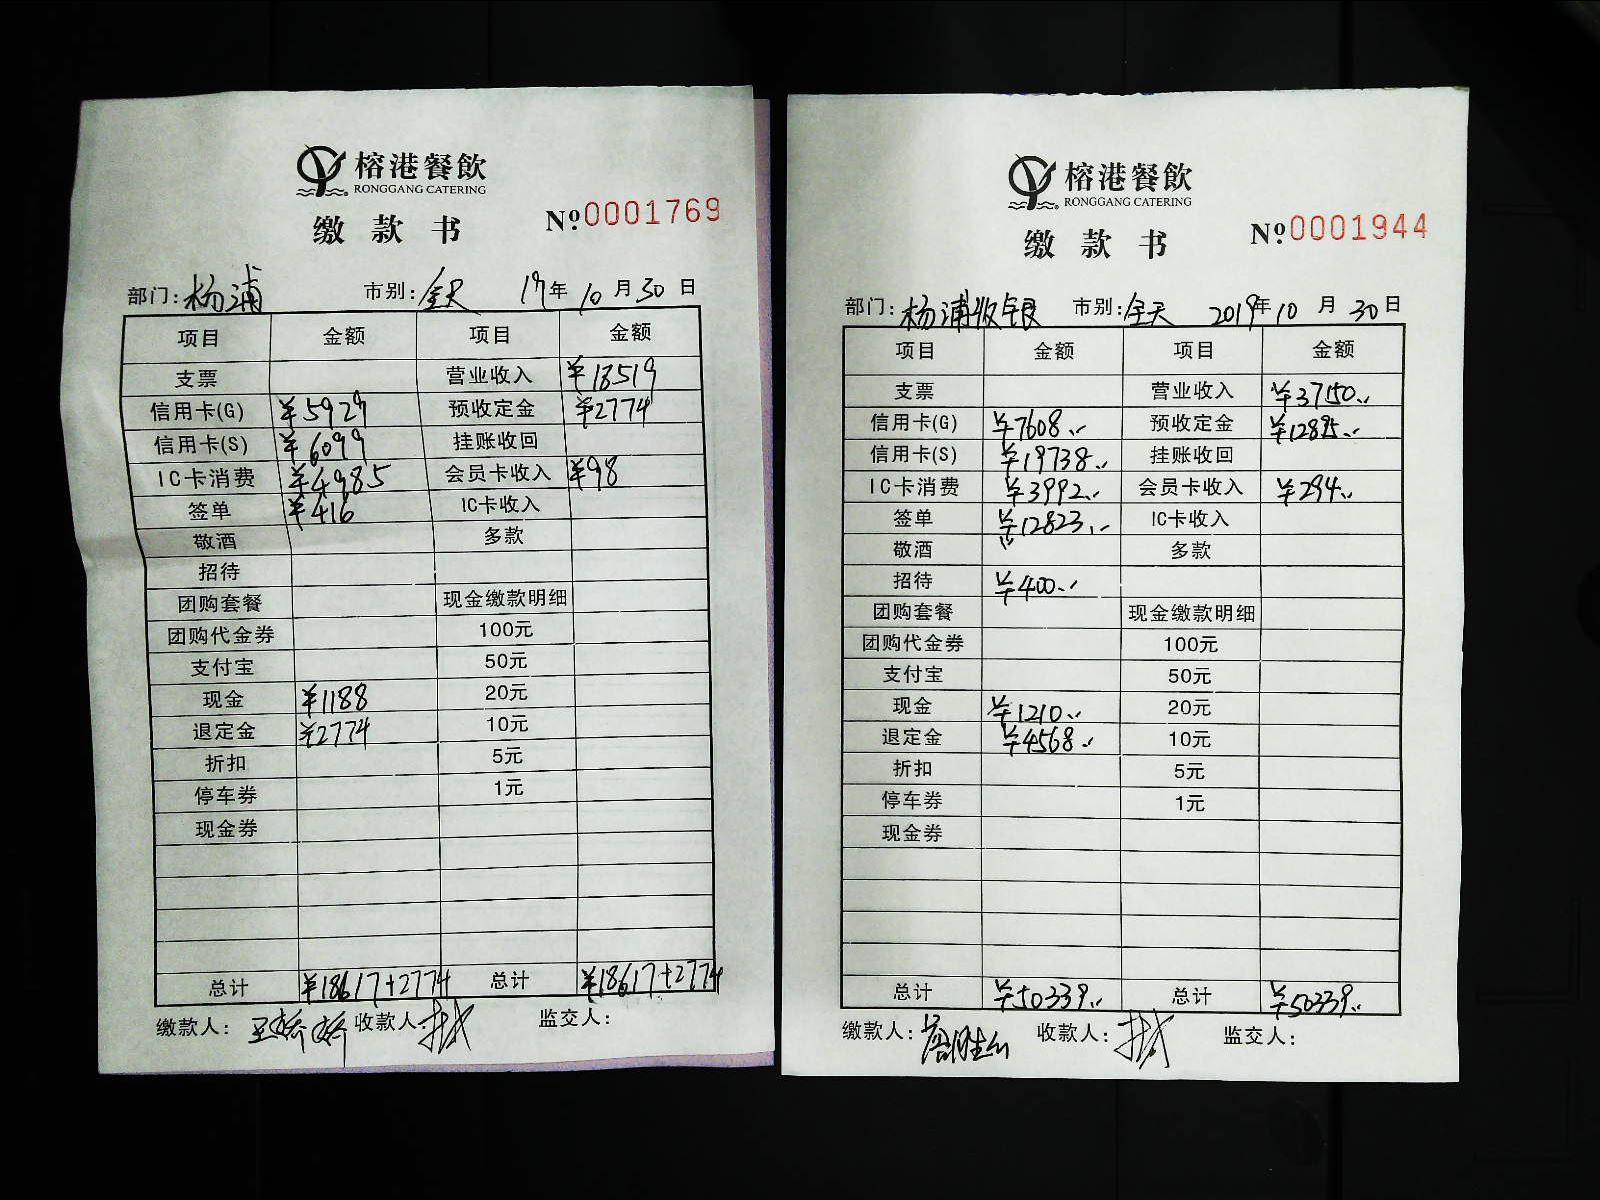 榕港餐飲
RONGGANG CATERING
缴款书 №0001769
部门: 杨浦 市别: 全天 19年10月30日
项目 金额 项目 金额
支票 营业收入 ¥18519
信用卡(G) ¥5929 预收定金 ¥2774
信用卡(S) ¥6099 挂账收回
IC卡消费 ¥4985 会员卡收入 ¥98
签单 ¥416 IC卡收入
敬酒 多款
招待
团购套餐 现金缴款明细
团购代金券 100元
支付宝 50元
现金 ¥1188 20元
退定金 ¥2774 10元
折扣 5元
停车券 1元
现金券
总计 ¥18617+2774 总计 ¥18617+2774
缴款人: 王娇娇 收款人: 监交人:
榕港餐飲
RONGGANG CATERING
缴款书 №0001944
部门: 杨浦收银 市别: 全天 2019年10月30日
项目 金额 项目 金额
支票 营业收入 ¥37150..
信用卡(G) ¥7608.. 预收定金 ¥12895..
信用卡(S) ¥19738.. 挂账收回
IC卡消费 ¥3992.. 会员卡收入 ¥294..
签单 ¥12823.. IC卡收入
敬酒 多款
招待 ¥400..
团购套餐 现金缴款明细
团购代金券 100元
支付宝 50元
现金 ¥1210.. 20元
退定金 ¥4568.. 10元
折扣 5元
停车券 1元
现金券
总计 ¥50339.. 总计 ¥50339..
缴款人: 收款人: 监交人: